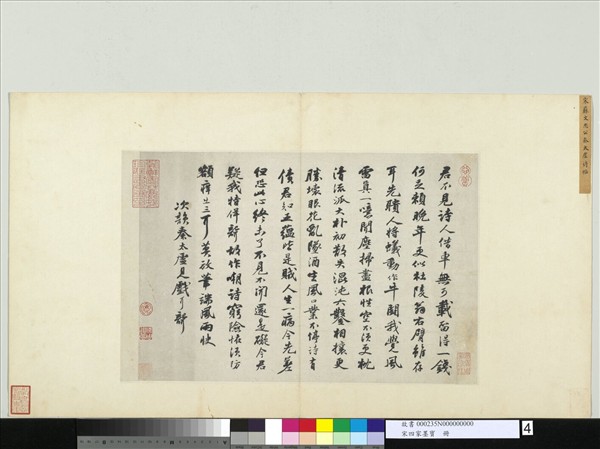 君不見詩人借車無可載留得一錢
何足賴晚年更似杜陵翁右臂雖存
耳先聵人將蟻動作牛鬭我覺風
雷真一噫聞塵掃盡根性空不須更枕
清流派大朴初散失混沌六鑿相攘更
勝壞眼花亂墜酒生風口業不停詩有
債君知五蘊皆是賊人生一病今先差
但恐此心終未了不見不聞還是礙今君
疑我特佯聾故作嘲詩窮險怪須防
額癢出三耳莫放筆端風雨快
次韻秦太虛見戲耳聾
故書 000235N000000000
宋四家墨寶 冊
4